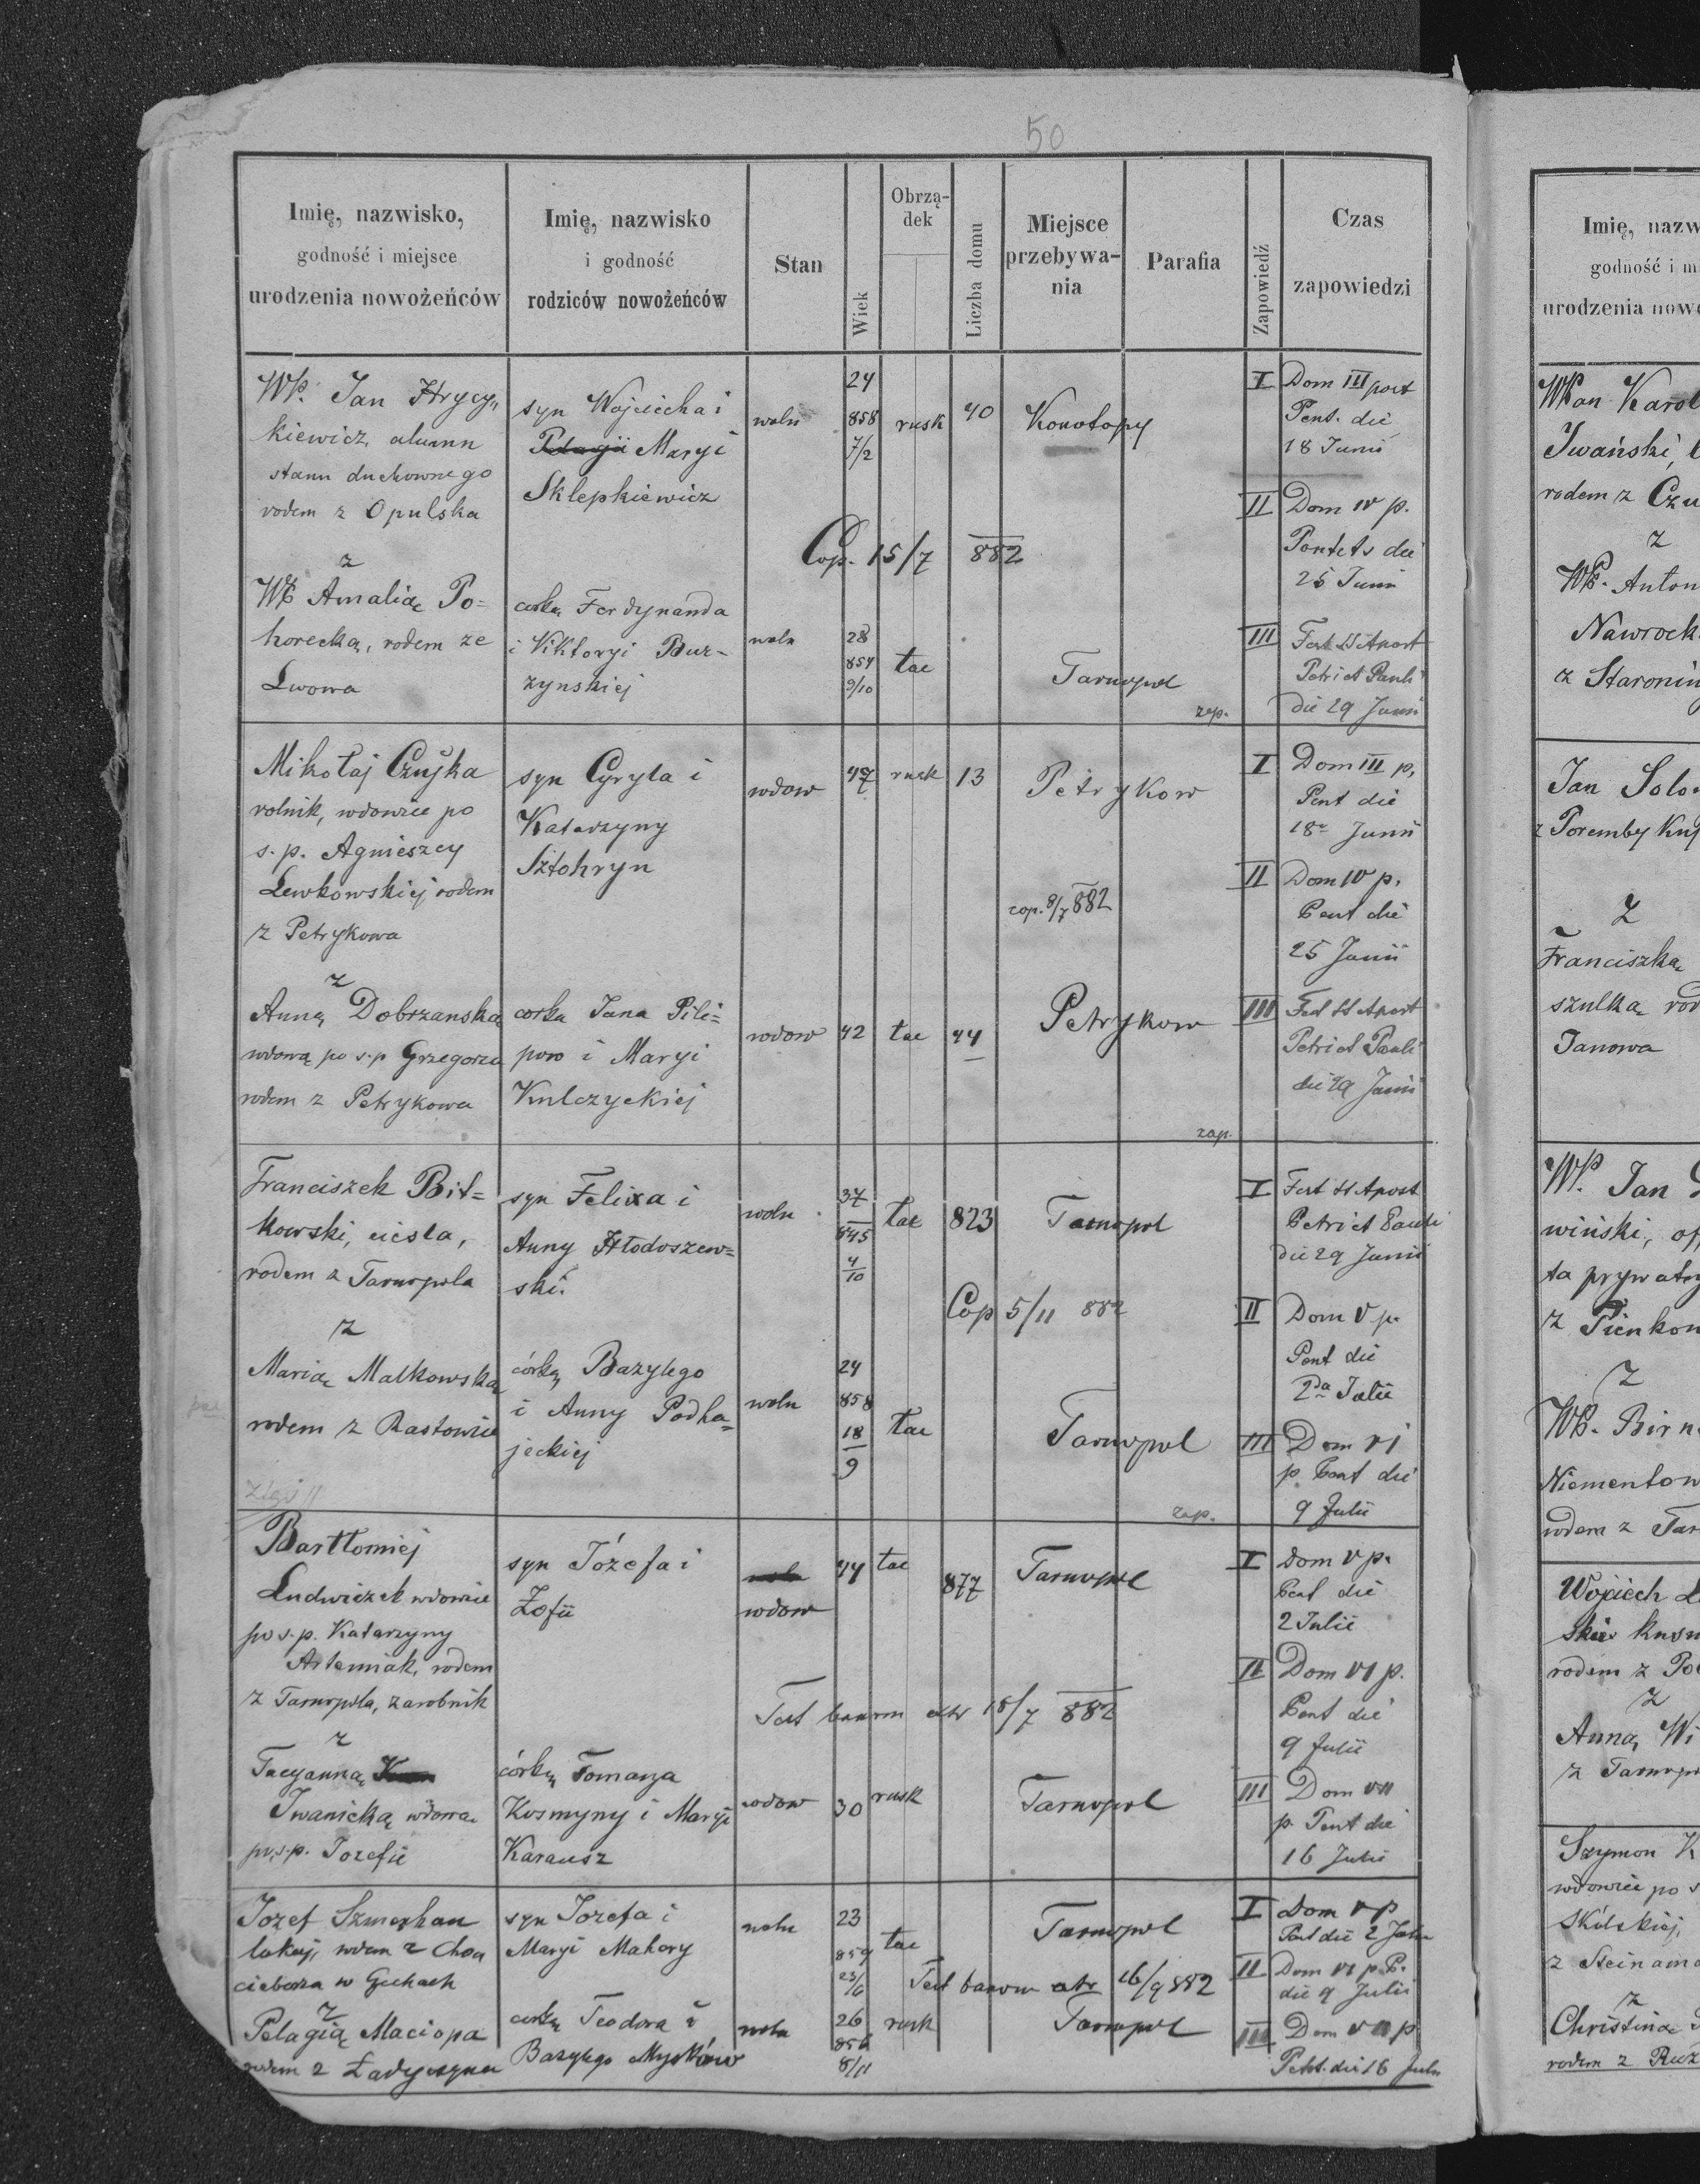 50
Imię, nazwisko,
godność i miejsce
urodzenia nowożeńców
Imię, nazwisko
i godność
rodziców nowożeńców
Stan
Wiek
Obrzą-
dek
Liczba domu
Miejsce
przebywa-
nia
Parafia
Zapowiedź
Czas
zapowiedzi
WP. Jan Hrycy„
kiewicz, alumn
stanu duchownego
rodem z Opulska
z
WP. Amalią Po=
horecką, rodem ze
Lwowa
syn Wojciecha i
Pelagii Maryi
Sklepkiewicz
corką Ferdynanda
i Viktoryi Bur-
zynskiej
woln
24
858
7/2
rusk
40
Konotopy
Cop. 15/7 882
woln
28
854
9/10
łac
Tarnopol
zap.
I Dom III post
Pent. die
18 Junii
II Dom IV p.
die
25 Junii
III Fest SS Apost
Petri et Pauli
die 29 Junii
Mikołaj Czujka
rolnik, wdowiec po
s. p. Agnieszcy
Lewkowskiej rodem
z Petrykowa
z
Anną Dobrzanską
wdową po s.p Grzegorzu
rodem z Petrykowa
syn Cyryla i
Katarzyny
Sztohryn
corka Jana Pili=
pow i Maryi
Kulczyckiej
wdow
47
rusk
13
Petrykow
cop. 8/7 882
wdow
42
łac
44
Petrykow
zap.
I Dom III p.
Pent die
18 Junii
II Dom IV p.
Pent die
25 Junii
III Fest SS Apost
Petri et Pauli
die 29 Junii
Franciszek Bit=
kowski, ciesla,
rodem z Tarnopola
z
Marią Malkowską
rodem z Rastowiec
syn Felixa i
Anny Hłodoszew=
ski.
córką Bazylego
i Anny Podha=
jeckiej
woln
37
845
4/10
łac
823
Tarnopol
Cop 5/11 882
woln
24
858
18/9
łac
Tarnopol
zap.
I Fest SS Apost
Petri et Pauli
die 29 Junii
II Dom V p.
Pent die
2da Julii
III Dom VI
p. Pent die
9 Julii
Bartłomiej
Ludwiczek wdowiec
po s.p. Katarzyny
Artemiak, rodem
z Tarnopola, zarobnik
z
Tacyanną
Iwanicką wdowa
po s.p. Jozefie
syn Józefa i
Zofii
córką Tomasza
Kosmyny i Maryi
Karausz
woln
wdow
44
łac
877
Tarnopol
Test bannor extr 18/7 882
wdow
30
rusk
Tarnopol
I Dom V p.
Pent die
2 Julii
II Dom VI p.
Pent die
9 Julii
III Dom VII
p. Pent die
16 Julii
Jozef
lokaj, rodem z
w
z
Pelagią Maciopa
rodem z Ładyczyna
syn Jozefa i
Maryi Mahory
corką Teodora i
Bazylego Myśków
woln
23
859
23/6
łac
Tarnopol
Test bannor extr 16/9 882
woln
26
856
8/11
rusk
Tarnopol
I Dom V p
Pent die 2 Julii
II Dom VI p. P.
die 9 Julii
III Dom VII p
Pent. die 16 Julii
Imię, nazw
godność i mi
urodzenia nowo
WPan Karol
Iwański,
rodem z
z
WP. Anton
Nawrock
z Staronin
Jan Solo
z Poremby
z
Franciszką
szulką rod
Janowa
WP. Jan
wiński, of
ta prywatny
z Pienkow
z
WP. Birn
Niementow
rodem z Tar
Wojciech
rodem z
z
Anną Wi
z Tarnopo
Szymon K
wdowiec po s
Skólskiej,
z Steinama
z
Christina
rodem z